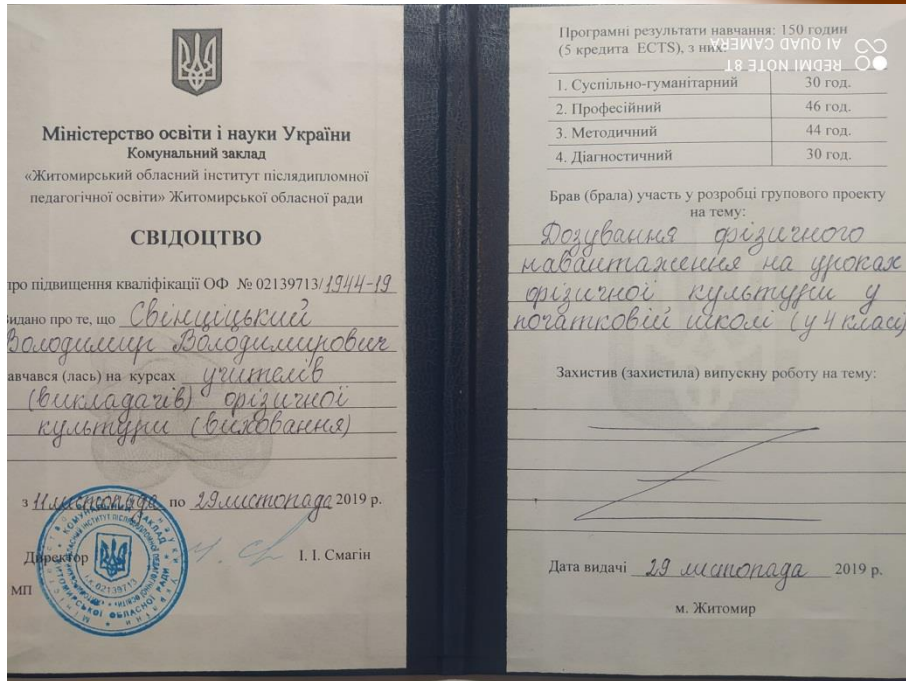 Міністерство освіти і науки України
Комунальний заклад
«Житомирський обласний інститут післядипломної
педагогічної освіти» Житомирської обласної ради
СВІДОЦТВО
про підвищення кваліфікації ОФ № 02139713/1944-19
видано про те, що Свінціцький
Володимир Володимирович
авчався (лась) на курсах учителів
(викладачів) фізичної
культури (виховання)
з 11 листопада по 29 листопада 2019 р.
Директор І. І. Смагін
МП
КОМУНАЛЬНИЙ ЗАКЛАД
ЖИТОМИРСЬКОЇ ОБЛАСНОЇ РАДИ
02139713
Програмні результати навчання: 150 годин
(5 кредита ECTS), з них:
1. Суспільно-гуманітарний 30 год.
2. Професійний 46 год.
3. Методичний 44 год.
4. Діагностичний 30 год.
Брав (брала) участь у розробці групового проекту
на тему:
Дозування фізичного
навантаження на уроках
фізичної культури у
початковій школі (у 4 класі)
Захистив (захистила) випускну роботу на тему:
Дата видачі 29 листопада 2019 р.
м. Житомир
REDMI NOTE 8T
AI QUAD CAMERA